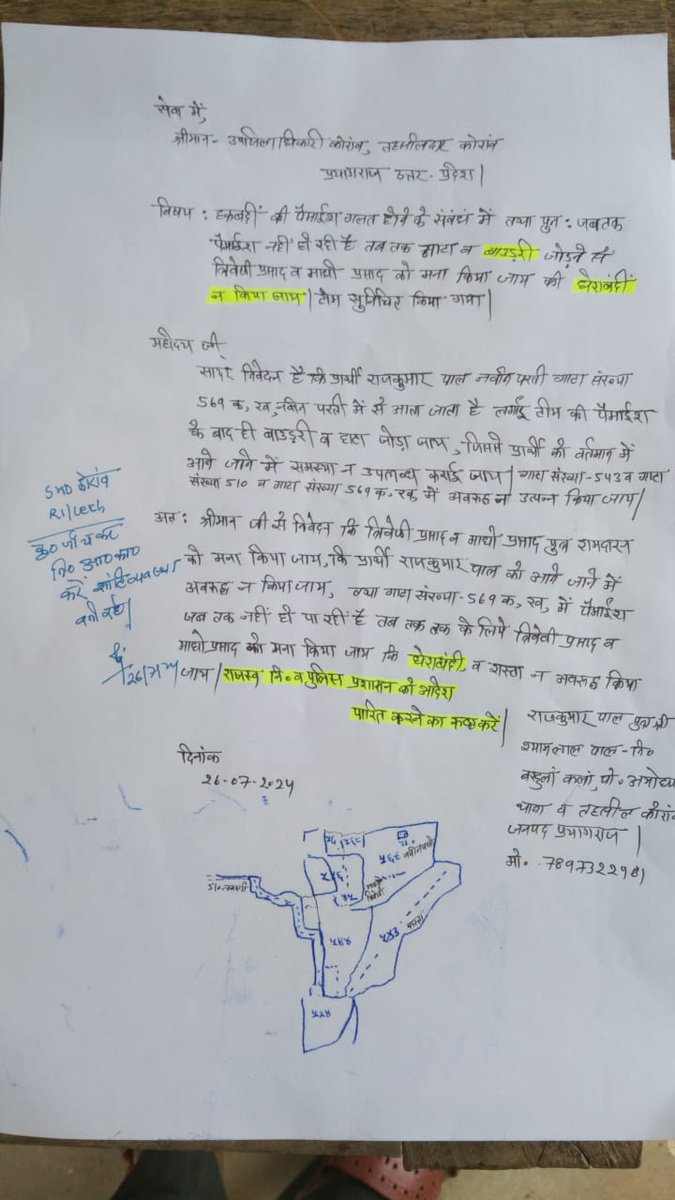 सेवा में,
श्रीमान- उपजिलाधिकारी कोरांव, तहसीलदार कोरांव
प्रयागराज उत्तर-प्रदेश|
विषय : हकबंदी की पैमाईश गलत होने के संबंध में तथा पुन: जबतक
पैमाईश नहीं हो रही है तब तक हाटा व बाउड्री जोड़ने से
त्रिवेणी प्रसाद व माधो प्रसाद को मना किया जाय की घेराबंदी
न किया जाय| टीम किया गया|
महोदय जी,
सादर निवेदन है कि प्रार्थी राजकुमार पाल नवीन परती गाटा संख्या
569 क, ख, नवीन परती में से आता जाता है टीम की पैमाईश
के बाद ही बाउड्री व हाटा जोड़ा जाय, जिससे प्रार्थी को वर्तमान में
आने जाने में समस्या न उपलब्ध कराई जाय| गाटा संख्या-543 व गाटा
संख्या 510 व गाटा संख्या 569 क, ख में अवरूद्ध न उत्पन्न किया जाय|
अत: श्रीमान जी से निवेदन कि त्रिवेणी प्रसाद व माधो प्रसाद पुत्र रामदास
को मना किया जाय, कि प्रार्थी राजकुमार पाल को आने जाने में
अवरूद्ध न किया जाय, तथा गाटा संख्या-569 क, ख, में पैमाईश
जब तक नहीं हो पा रही है तब तक तक के लिये त्रिवेणी प्रसाद व
माधो प्रसाद को मना किया जाय कि घेराबंदी व रास्ता न अवरूद्ध किया
जाय| राजस्व नि० व पुलिस प्रशासन को आदेश
पारित करने का कष्ट करें|
SHO कोरांव
RI/Lekh
कृ० जाँच कर
करें शांति व्यवस्था
बनी रहे|
26/7/24
दिनांक
26-07-2024
राजकुमार पाल पुत्र श्री
श्यामलाल पाल- नि०
कलां, पो.
थाना व तहसील कोरांव
जनपद प्रयागराज|
मो. 7897322981
५६९
५४४
५४३
५२४